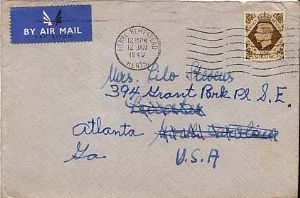 BY AIR MAIL
HEMEL HEMPSTEAD
12 JAN
HERTS
Mrs. Lilo Stevens
394 Grant Park Pl. S.E.
Atlanta
Ga
U.S.A